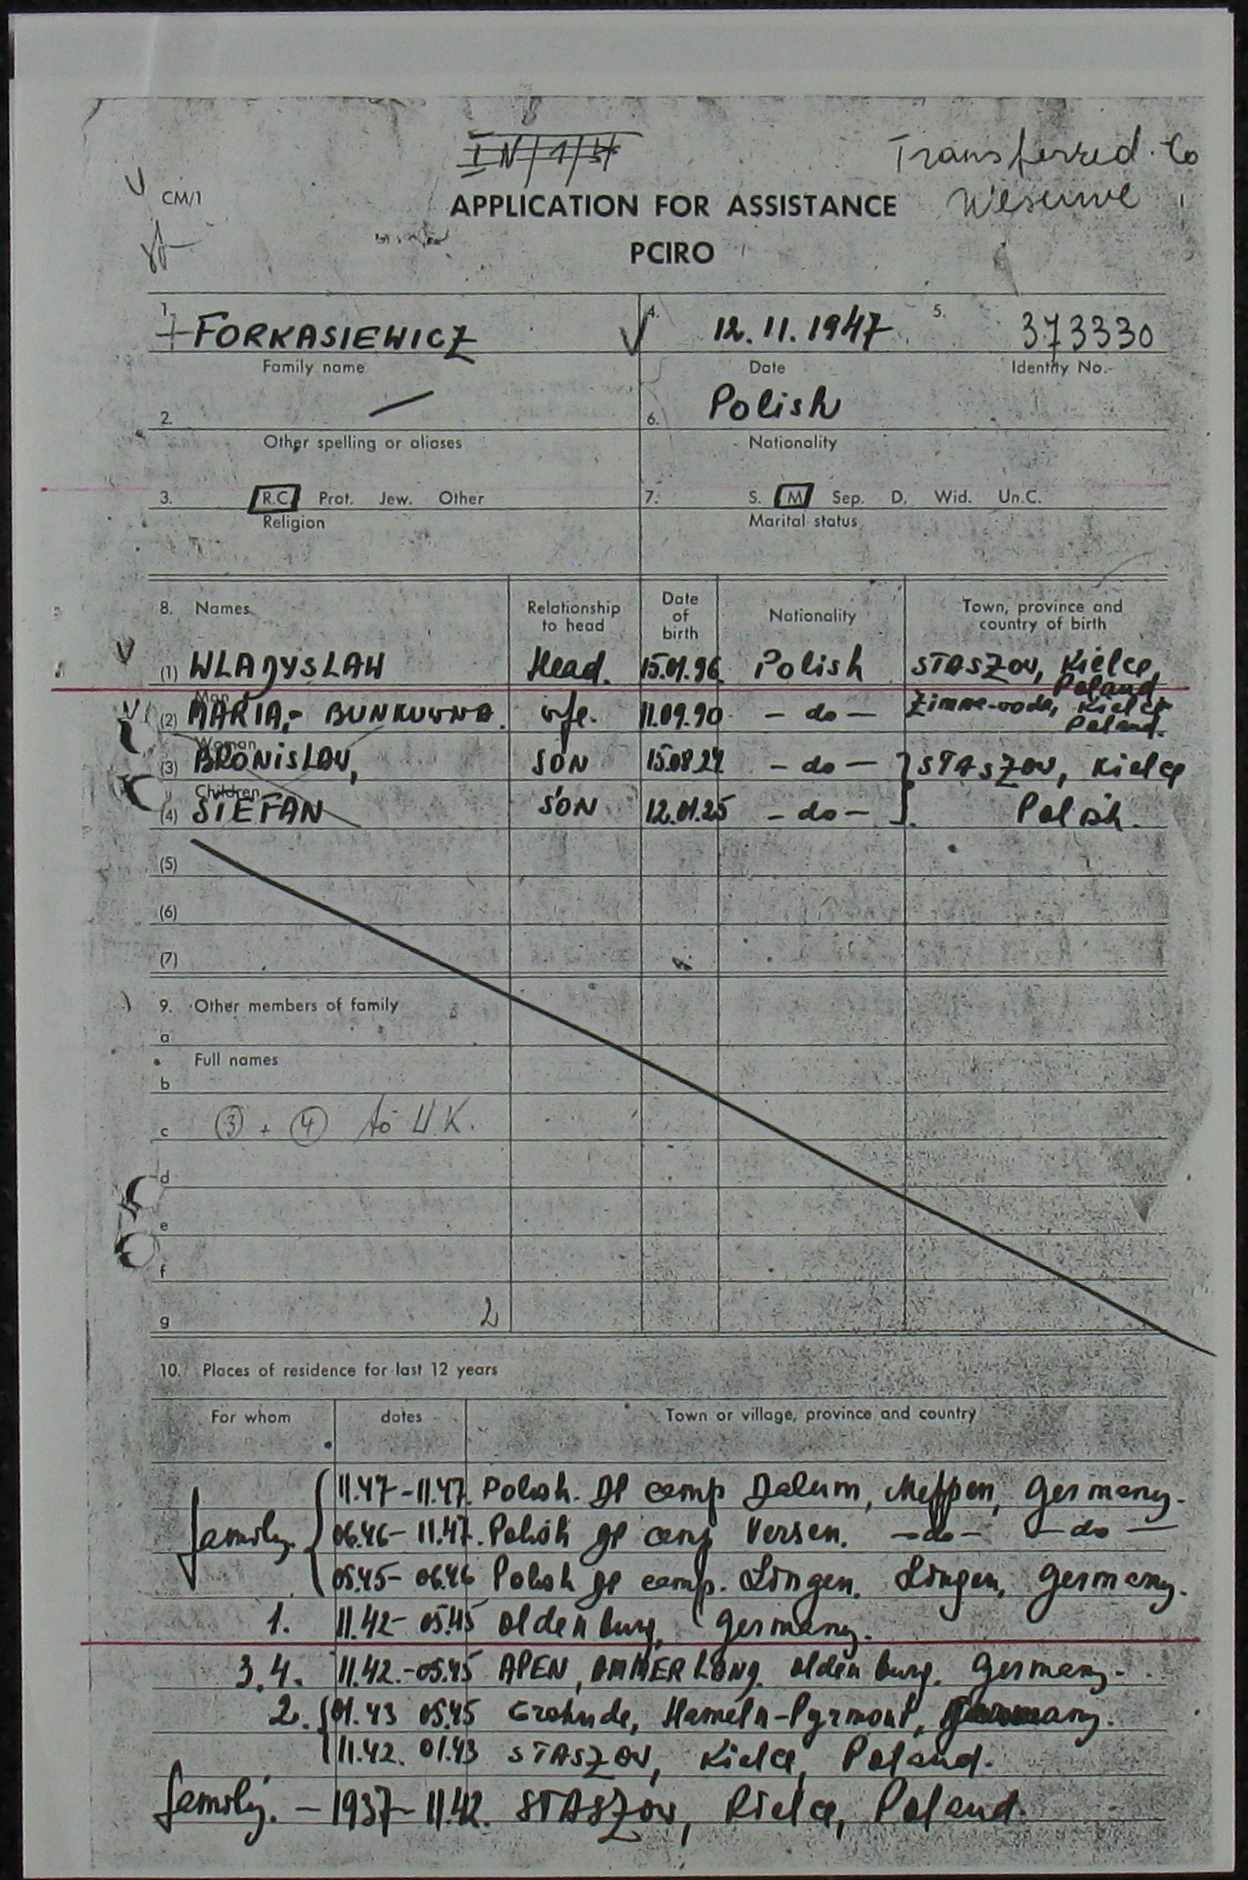 IN/1/
Transferred to
CM/1
APPLICATION FOR ASSISTANCE
PCIRO
1. FORKASIEWICZ
4. 12.11.1947
5. 373330
Family name
Date
Identity No.
2. —
6. Polish
Other spelling or aliases
Nationality
3. R.C. Prot. Jew. Other
7. S. M. Sep. D. Wid. Un.C.
Religion
Marital status
8. Names Relationship to head Date of birth Nationality Town, province and country of birth
(1) WLADYSLAW Head. 15.01.96 Polish STASZOV, Kielce, Poland
Man
(2) MARIA,- BUNKUWNA wfe. 11.09.90 - do - Zimna-voda, Kielce Poland.
Woman
(3) BRONISLAV, SON 15.08.24 - do - STASZOV, Kielce
Children
(4) STEFAN SON 12.01.25 - do - Polish.
(5)
(6)
(7)
9. Other members of family
a
Full names
b
c ③ + ④ to U.K.
d
e
f
g 2
10. Places of residence for last 12 years
For whom dates Town or village, province and country
family. 11.47-11.47. Polish DP camp Dalum, Meppen, Germany.
06.46-11.47. Polish DP camp Versen. -do- -do-
05.45-06.46 Polish DP camp. Lingen, Lingen, Germany.
1. 11.42-05.45 Oldenburg, Germany.
3.4. 11.42.-05.45 APEN, AMMERLAND. Oldenburg. Germany.
2. 01.43 05.45 Grohnde, Hameln-Pyrmont, Germany.
11.42. 01.43 STASZOV, Kielce, Poland.
family. - 1937-11.42. STASZOV, Kielce, Poland.